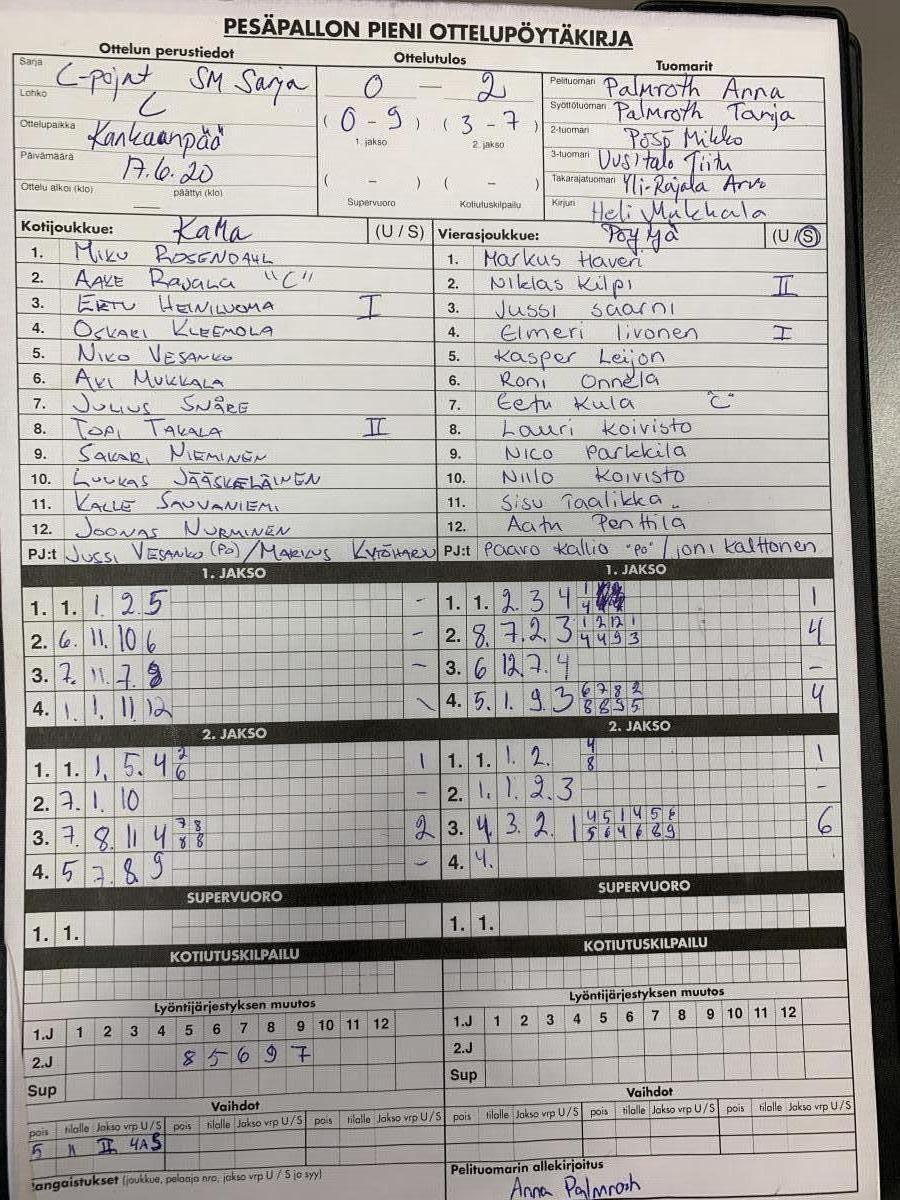 PESÄPALLON PIENI OTTELUPÖYTÄKIRJA
Ottelun perustiedot
Sarja C-point SM Sarja
Lohko C
Ottelupaikka Kankaanpää
Päivämäärä 17.6.20
Ottelu alkoi (klo) päättyi (klo)
Ottelutulos
0 — 2
( 0 - 9 ) ( 3 - 7 )
1. jakso 2. jakso
( - ) ( - )
Supervuoro Kotiutuskilpailu
Tuomarit
Pelituomari Palmroth Anna
Syöttötuomari Palmroth Tanja
2-tuomari Pösö Mikko
3-tuomari Uusitalo Tiitu
Takarajatuomari Yli-Rajala Arvo
Kirjuri Heli Mukkala
Kotijoukkue: KaMa (U / S)
1. MIKU ROSENDAHL
2. AAKE RAJALA "C"
3. EETU HEINILUOMA I
4. OSKARI KLEEMOLA
5. NIKO VESANKO
6. AKI MUKKALA
7. JULIUS SNÅRE
8. TOPI TAKALA II
9. SAKARI NIEMINEN
10. LUUKAS JÄÄSKELÄINEN
11. KALLE SAUVANIEMI
12. JOONAS NURMINEN
PJ:t JUSSI VESANKO (PO) / MARKUS
Vierasjoukkue: PöyJä (U / S)
1. Markus Haveri
2. Niklas Kilpi II
3. Jussi Saarni
4. Elmeri Iivonen I
5. Kasper Leijon
6. Roni Onnela
7. Eetu Kula "C"
8. Lauri Koivisto
9. Nico Parkkila
10. Niilo Koivisto
11. Sisu Taalikka
12. Aatu Penttilä
PJ:t Paavo Kallio "PO" / Joni Kalttonen
1. JAKSO
1. 1. 1. 2 5 -
2. 6. 11. 10 6 -
3. 7. 11. 7. -
4. 1. 1. 11. 12
2. JAKSO
1. 1. 1. 5. 4 2 1
6
2. 7. 1. 10 -
3. 7. 8. 11 4 7 8 2
8 8
4. 5 7. 8. 9 -
SUPERVUORO
1. 1.
KOTIUTUSKILPAILU
Lyöntijärjestyksen muutos
1.J 1 2 3 4 5 6 7 8 9 10 11 12
2.J 8 5 6 9 7
Sup
Vaihdot
pois tilalle Jakso vrp U / S pois tilalle Jakso vrp U / S pois tilalle Jakso vrp U / S
5 11 II 4A S
angaistukset (joukkue, pelaaja nro, jakso vrp U / S ja syy)
1. JAKSO
1. 1. 2. 3 4 1 1
4
2. 8. 7. 2. 3 1 2 12 1 4
4 4 9 3
3. 6 12. 7. 4 -
4. 5. 1. 9. 3 6 7 8 2 4
8 8 9 5
2. JAKSO
1. 1. 1. 2. 4 1
8
2. 1. 1. 2. 3 -
3. 4. 3. 2. 1 4 5 1 4 5 6 6
5 6 4 6 8 9
4. 4.
SUPERVUORO
1. 1.
KOTIUTUSKILPAILU
Lyöntijärjestyksen muutos
1.J 1 2 3 4 5 6 7 8 9 10 11 12
2.J
Sup
Vaihdot
pois tilalle Jakso vrp U / S pois tilalle Jakso vrp U / S pois tilalle Jakso vrp U / S
Pelituomarin allekirjoitus
Anna Palmroth